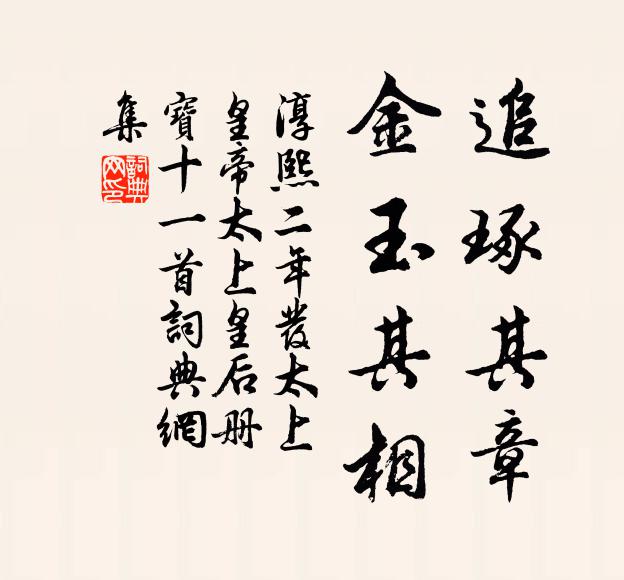 追琢其章
金玉其相
淳熙二年發太上
皇帝太上皇后册
寶十一首詞典網
集
詞典網印